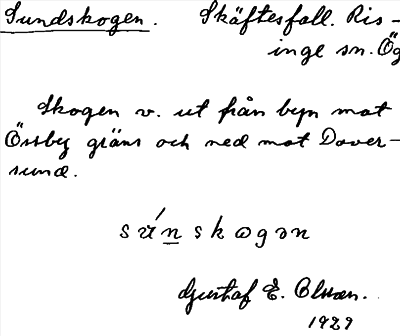 Sundskogen. Skäftesfall. Ris-
inge sn. Ög
Skogen v. ut från byn mot
Örsby gräns och ned mot Dover-
sund.
sún̲skogən
Gustaf E. Olsson.
1929